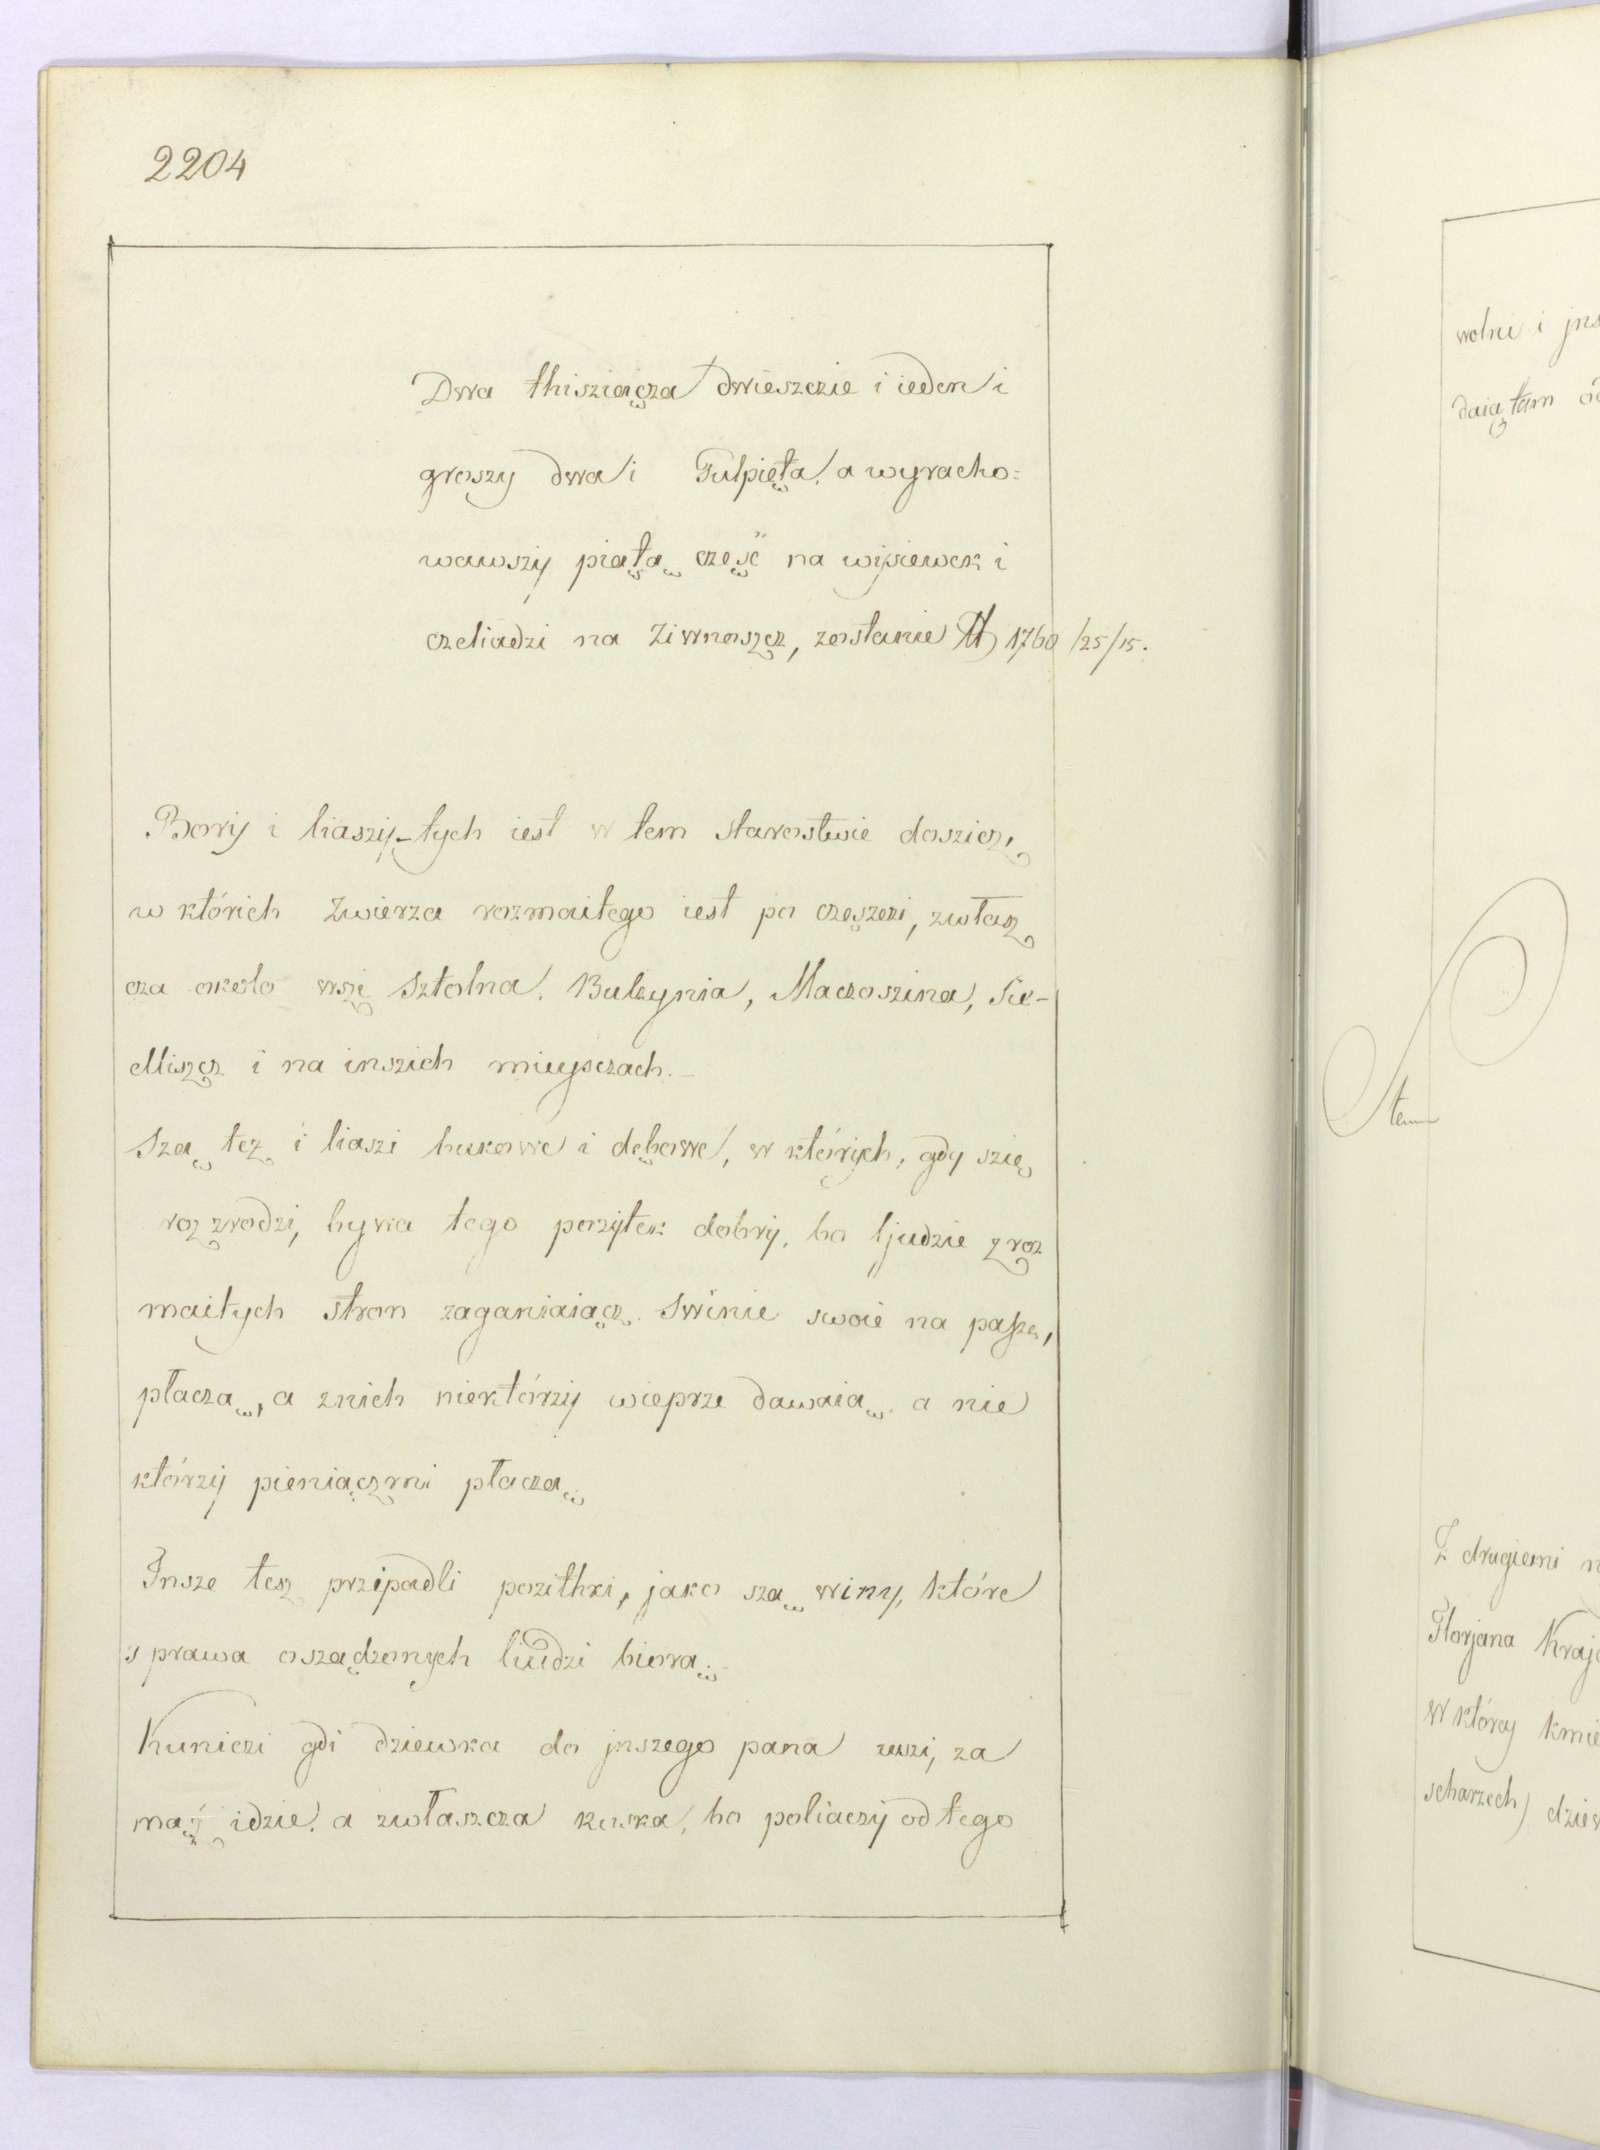 2204
Dwa thisziącza dwieszczie i ieden i
groszy dwa i Pułpięta, a wyracho=
wawszÿ piątą część na wÿsiewek i
czeliadzi na Ziwnoszcz, zostanie fl 1760/25/15.
Borrÿ i liaszÿ-tych iest w tem starostwie doszicz,
w którich Zwierza rozmaitego iest po częszczi, zwłasz
cza około wszi Sztolna, Bulzynia, Maczoszina, Sie-
dliszcz i na inszich mieysczach.-
Szą też i liaszi bukowe i dębowe, w którÿch, gdy szię
rozzrodzi, bywa tego pozÿtek dobrÿ, bo ljudzie z roz
maitych stron zaganiaiącz Swinie swoie na paszę,
płaczą, a znich niektórzÿ wieprze dawaią a nie
którzÿ pieniączmi płaczą
Insze tesz przipadli pozithki, jako szą winy, które
s prawa osządzonych liudzi biorą.
Kuniczi gdi dziewka do jnszego pana wszi, za
mąż idzie, a zwłaszcza ruska, bo poliaczÿ od tego
wolni i jns
daią tam
tem
Z drugiemi n
Florjana Kraj
W którey kmie
scharzech) dziew